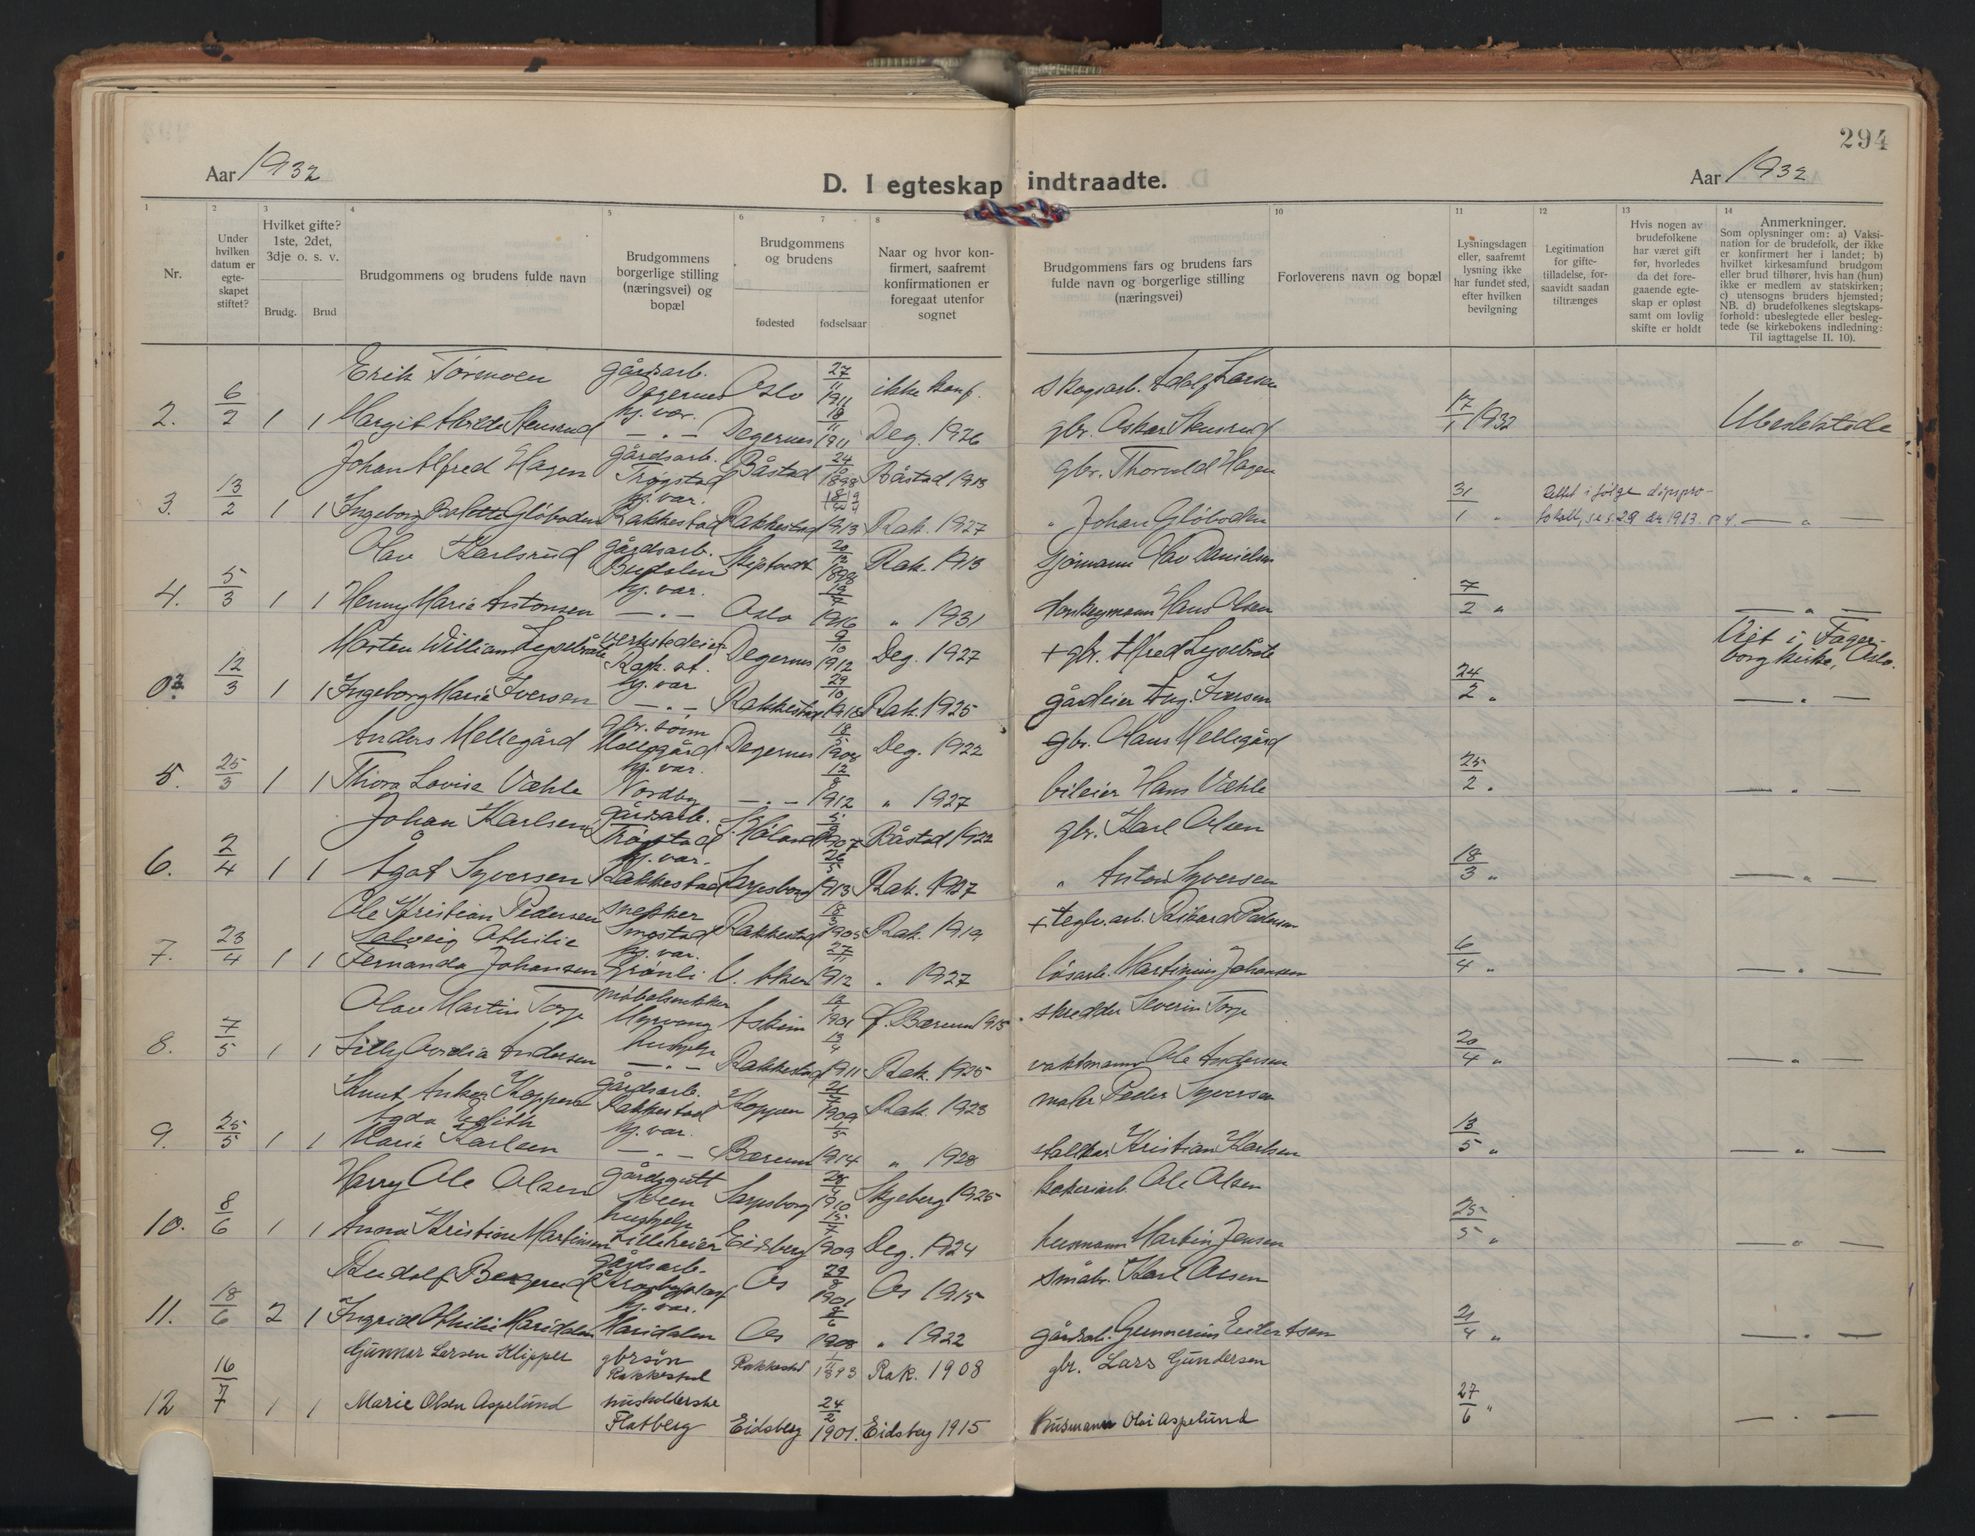 294
Aar 1932
D. I egteskap indtraadte.
Aar 1932
1 2 3 4 5 6 7 8 9 10 11 12 13 14
Nr.
Under hvilken datum er egteskapet stiftet?
Hvilket gifte? 1ste, 2det, 3dje o. s. v.
Brudg. Brud
Brudgommens og brudens fulde navn
Brudgommens borgerlige stilling (næringsvei) og bopæl
Brudgommens og brudens
fødested fødselsaar
Naar og hvor konfirmert, saafremt konfirmationen er foregaat utenfor sognet
Brudgommens fars og brudens fars fulde navn og borgerlige stilling (næringsvei)
Forloverens navn og bopæl
Lysningsdagen eller, saafremt lysning ikke har fundet sted, efter hvilken bevilgning
Legitimation for giftetilladelse, forsaavidt saadan tiltrænges
Hvis nogen av brudefolkene har været gift før, hvorledes da det foregaaende egteskap er opløst samt om lovlig skifte er holdt
Anmerkninger.
Som oplysninger om: a) Vaksination for de brudefolk, der ikke er konfirmert her i landet; b) hvilket kirkesamfund brudgom eller brud tilhører, hvis han (hun) ikke er medlem av statskirken; c) utensogns bruders hjemsted; NB. d) brudefolkenes slegtskapsforhold: ubeslegtede eller beslegtede (se kirkebokens indledning: Til iagttagelse II. 10).
Erik Törmoen gårdsarb. Degernes Oslo 27/11 1911 ikke konf. skogsarb. Adolf Larsen
2. 6/2 1 1 Margit Alvilde Stensrud hj. vær. —„— Degernes 1911 Deg. 1926 gbr. Oskar Stensrud 17/1 1932 Ubeslektede
Johan Alfred Hagen gårdsarb. Trøgstad Båstad 24/10 1898 Båstad 1913 gbr. Thorvald Hagen
3. 13/2 1 1 Ingeborg Gløboden hj. vær. Rakkestad Rakkestad 1913 Rak. 1927 " Johan Gløboden 31/1 " Rettet i følge døpsprotokoll, se s. 29 år 1913. — " —
Olav Karlsrud gårdsarb. Budalen Skiptvedt 1898 Rak. 1913 sjømann Hav Danielsen
4. 5/3 1 1 Henny Marie Antonsen hj. vær. —„— Oslo 1916 " 1931 donkeymann Hans Olsen 7/2 " — " —
Morten William Lysebråte verkstedeier Rak. st. Degernes 9/10 1912 Deg. 1927 + gbr. Alfred Lysebråte Viet i Fagerborg kirke, Oslo.
12/3 1 1 Ingeborg Marie Iversen hj. vær —„— Rakkestad 29/10 Rak. 1925 gårdeier Aug. Iversen 24/2 " — " —
Anders Mellegård gbr. sønn Mellegård Degernes Deg. 1922 gbr. Olaus Mellegård
5. 25/3 1 1 Thora Lovise Væhle hj. vær. Nordby —„— 12/8 1912 " 1927 bileier Hans Væhle 25/2 " — " —
Johan Karlsen gårdsarb. Trøgstad S. Høland 1907 Båstad 1922 gbr. Karl Olsen
6. 2/4 1 1 Agot Syversen hj. vær. Rakkestad Sarpsborg 26/5 1913 Rak. 1927 " Anton Syversen 18/3 " — " —
Ole Kristian Pedersen snekker Rakkestad Rak. 1919 + teglv.arb. Rikard Pedersen
7. 23/4 1 1 Solveig Othilie Fernanda Johansen hj. vær. Grønli V. Aker 1912 " 1927 løsarb. Martinius Johansen 6/4 " — " —
Olav Martin Torp møbelsnekker Myrvang Askim 1901 Bærum 1915 skredder Severin Torp
8. 7/5 1 1 Lilly Andersen hushjelp —„— Rakkestad 13/4 1911 Rak. 1925 vaktmann Ole Andersen 20/4 " — " —
Knut Anker Koppen gårdsarb. Rakkestad Koppen 1909 Rak. 1923 maler Peder Syversen
9. 25/5 1 1 Agda Edith Marie Karlsen hj. vær. —„— Bærum 1/5 1914 " 1928 Kristian Karlsen 13/5 " — " —
Harry Ole Olsen gårdsgutt Moen Sarpsborg 1910 Skjeberg 1925 bakeriarb. Ole Olsen
10. 8/6 1 1 Anna Kristine Martinsen hushjelp Lilleheier Eidsberg 1909 Deg. 1924 husmann Martin Jensen 25/5 " — " —
Rudolf Bergerud gårdsarb. Os 29/8 1901 Os 1915 småbr. Karl Olsen
11. 18/6 2 1 Ingrid Othilie Maridalen hj. vær. Maridalen Os 1908 " 1922 gårdsarb. Gunnerius Eilertsen 21/4 " — " —
Gunnar Larsen Klipper gbrsøn Rakkestad Rakkestad 1893 Rak. 1908 gbr. Lars Gundersen
12 16/7 1 1 Marie Olsen Aspelund husholderske Flatberg Eidsberg 24/2 1901. Eidsberg 1915 Husmann Olai Aspelund 27/6 " — " —